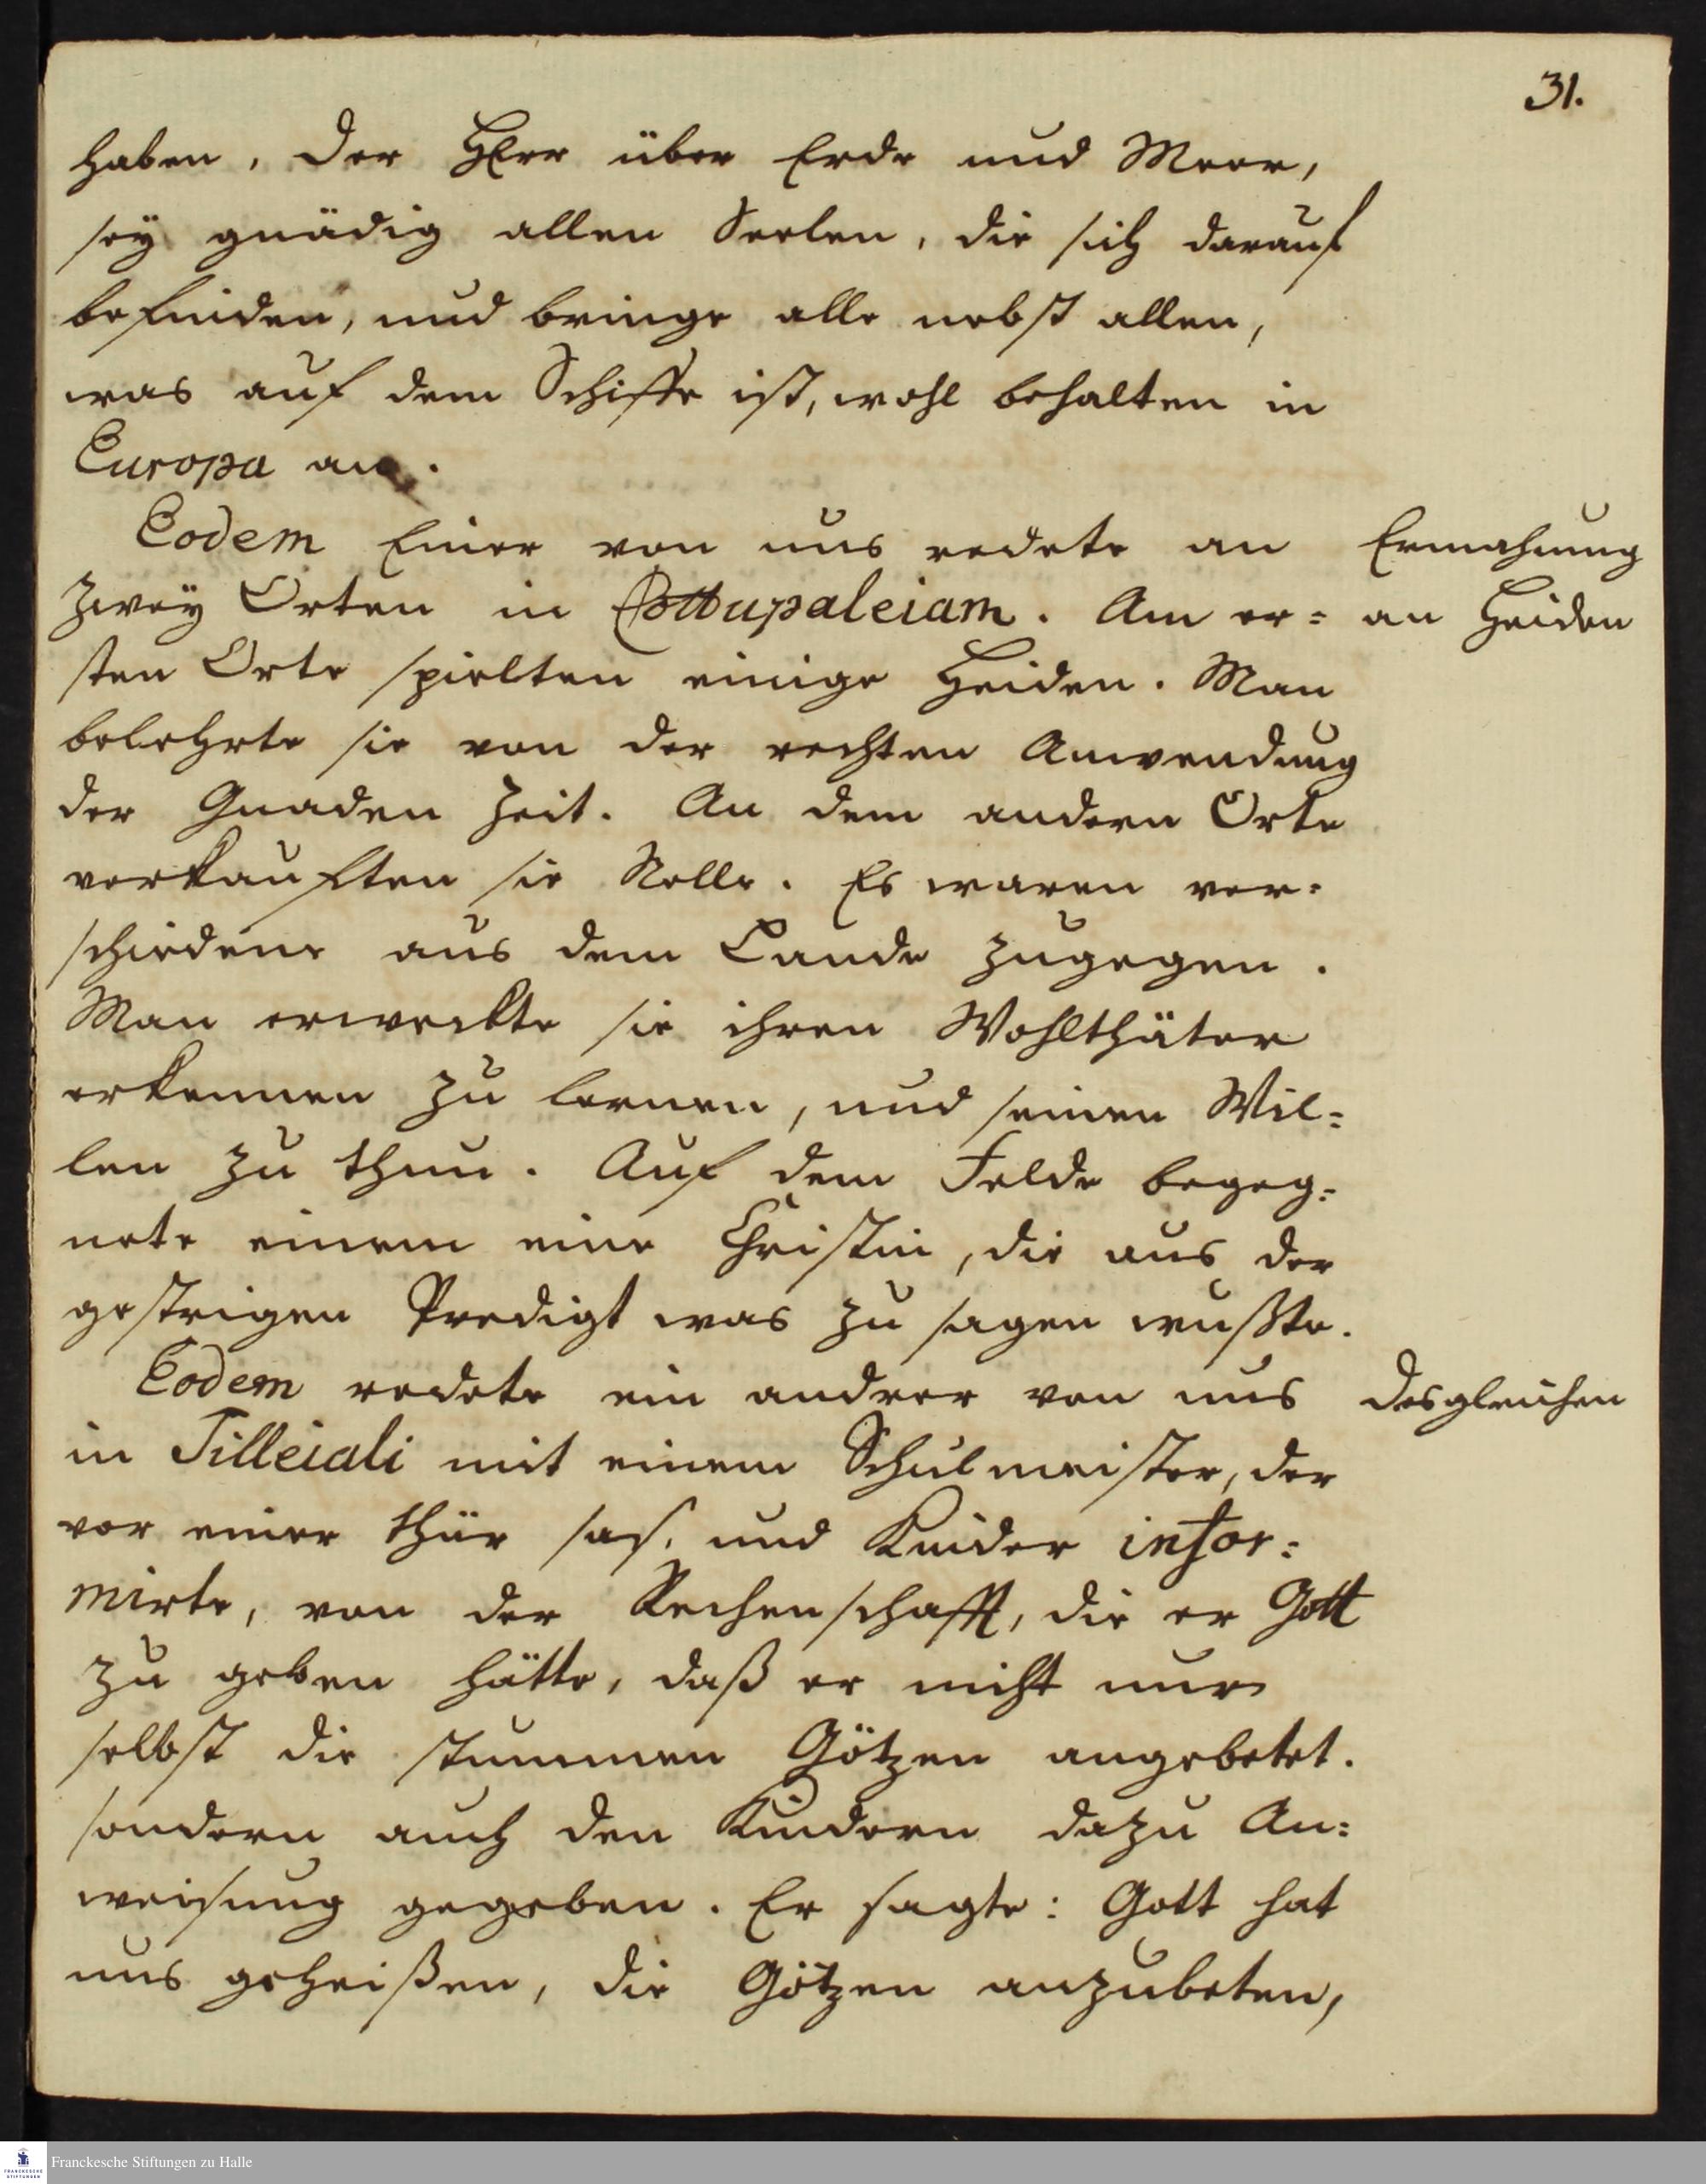 31.
haben. Der HErr über Erde und Meer,
sey gnädig allen Seelen, die sich darauf
befinden, und bringe alle nebst allen,
was auf dem Schiffe ist, wohl behalten in
Europa an.
Eodem Einer von uns redete an
Ermahnung
zwey Orten in Pottupaleiam. Am er=
an Heiden
sten Orte spielten einige Heiden. Man
belehrte sie von der rechten Anwendung
der Gnaden Zeit. An dem andern Orte
verkauften sie Nelle. Es waren ver=
schiedene aus dem Lande zugegen.
Man erweckte sie ihren Wohlthäter
erkennen zu lernen, und seinen Wil=
len zu thun. Auf dem Felde begeg=
nete einem eine Christin, die aus der
gestrigen Predigt was zu sagen wußte.
Eodem redete ein andrer von uns
desgleichen
in Tilleiali mit einem Schulmeister, der
vor einer Thür saß, und Kinder infor=
mirte, von der Rechenschafft, die er Gott
zu geben hätte, daß er nicht nur
selbst die stummen Götzen angebetet.
sondern auch den Kindern dazu An=
weisung gegeben. Er sagte: Gott hat
uns geheißen, die Götzen anzubeten,
FRANCKESCHE STIFTUNGEN
Franckesche Stiftungen zu Halle